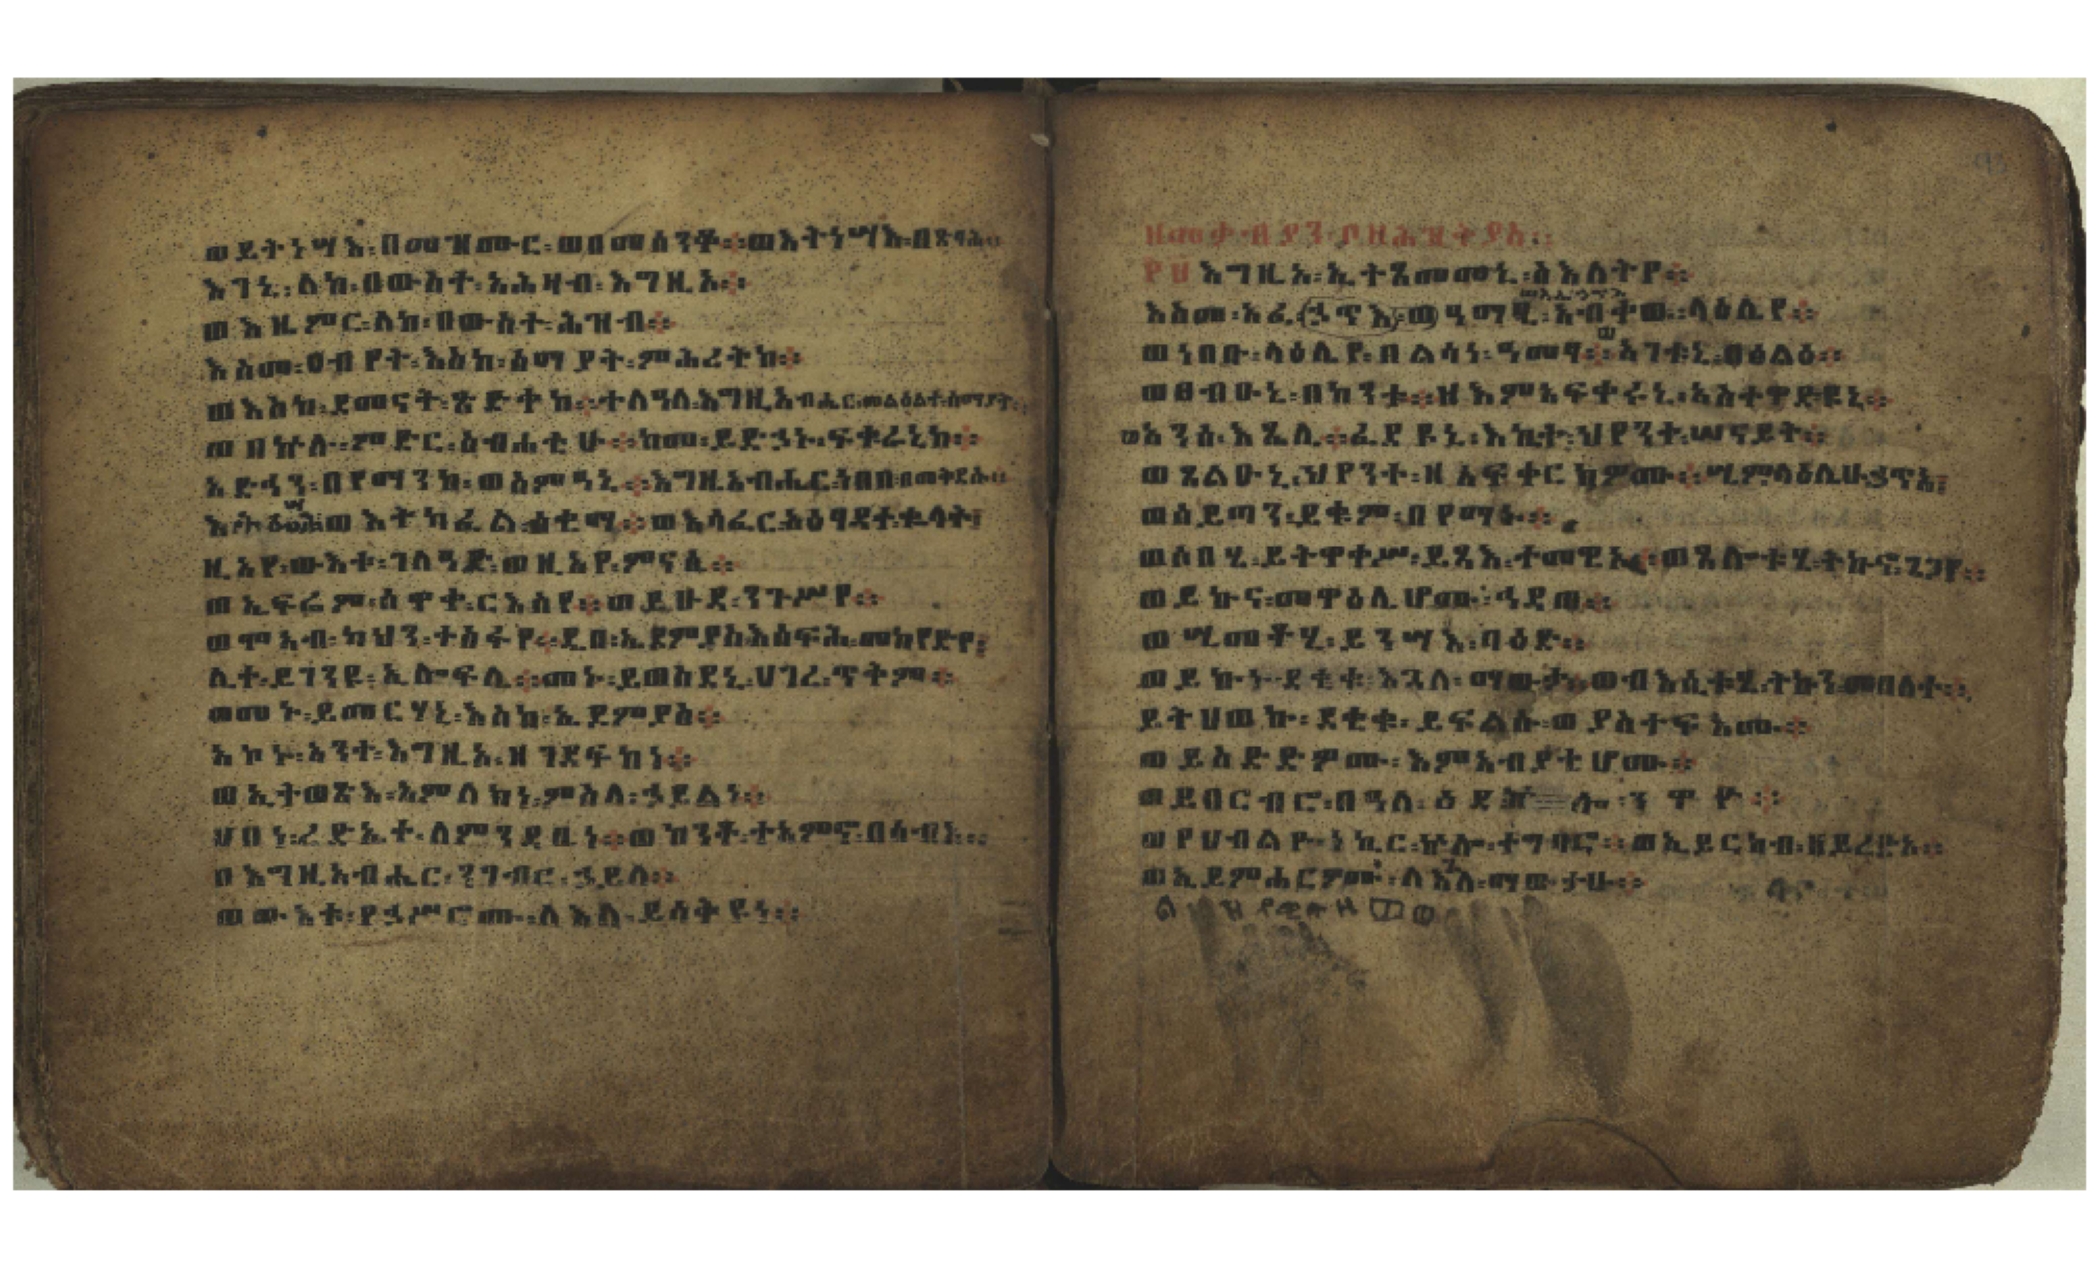 ወይትነሣእ፡በመዝሙር፡ወበመሰንቆ፨ወእትነሣእ፡በጽባሕ።
እገኒ፡ለከ፡በውስተ፡አሕዛብ፡እግዚኦ፨
ወእዜምር፡ለከ፡በውስተ፡ሕዝብ፨
እስመ፡ዐብየት፡እስከ፡ሰማያት፡ምሕረትከ፨
ወእስከ፡ደመናት፡ጽድቅከ፨ተለዓለ፡እግዚአብሔር፡መልዕልተ፡ሰማያት፨
ወበኵሉ፡ምድር፡ስብሐቲሁ፨ከመ፡ይድኃኑ፡ፍቁራኒከ፨
አድኅን፡በየማንከ፡ወስምዓኒ፨እግዚአብሔር፡ነበበ፡በመቅደሱ።
ወእትካፈል፡ሰቂማ፨ወእሳፈር፡አዕፃዳተ፡ቈላት፤
ዚአየ፡ውእቱ፡ገለዓድ፡ወዚአየ፡ምናሴ፨
ወኤፍሬም፡ጸዋተ፡ርእስየ፨ወይሁዳ፡ንጉሥየ፨
ወሞአብ፡ካህን፡ተስፋየ፨ዲበ፡ኤዶምያስ፡እሰፍሕ፡መከየድየ፤
ሊተ፡ይገንዩ፡ኢሎፍሊ፨መኑ፡ይወስደኒ፡ሀገረ፡ጥቅም፨
ወመኑ፡ይመርሃኒ፡እስከ፡ኤዶምያስ፨
አኮኑ፡አንተ፡እግዚኦ፡ዘገደፍከነ፨
ወኢትወጽእ፡አምላክነ፡ምስለ፡ኃይልነ፨
ሀበነ፡ረድኤተ፡ለምንዳቤነ፨ወከንቶ፡ተአምኖ፡በሰብእ፨
በእግዚአብሔር፡ንገብር፡ኃይለ፨
ወውእቱ፡የኃሥሮሙ፡ለእለ፡ይሣቅዩነ፨
ዘመቃብያን፡
፻፰ እግዚኦ፡ኢተጸመመኒ፡ስእለትየ፨
እስመ፡አፈ፡ኃጥእ፡ወዓማፂ፡አብቀወ፡ላዕሌየ፨
ወነበቡ፡ላዕሌየ፡በልሳነ፡ዓመፃ፨ወ አገቱኒ፡በፅልዕ፨
ወፀብዑኒ፡በከንቱ፨ዘእምአፍቀሩኒ፡አስተዋደዩኒ፨
ወአንሰ፡እጼሊ፨ፈደዩኒ፡እኪተ፡ህየንተ፡ሠናይት፨
ወጸልዑኒ፡ህየንተ፡ዘአፍቀርክዎሙ፨ሢም፡ላዕሌሁ፡ኃጥአ፤
ወሰይጣን፡ይቁም፡በየማኑ፨
ወሶበሂ፡ይትዋቀሥ፡ይጻእ፡ተመዊኦ፨ወጸሎቱሂ፡ትኩኖ፡ጌጋየ፨
ወይኩና፡መዋዕሊሆሙ፡ኅዳጠ፨
ወሢመቶሂ፡ይንሣእ፡ባዕድ፨
ወይኩኑ፡ደቂቁ፡እጓለ፡ማውታ፡ወብእሲቱሂ፡ትኩን፡መበለተ፨
ይትሀወኩ፡ደቂቁ፡ይፍልሱ፡ወያስተፍእሙ፨
ወይስድድዎሙ፡እምአብያቲሆሙ፨
ወይበርብሮ፡በዓለ፡ዕዳ
ወየሀብልዮ፡ነኪር፡ኵሎ፡ተግባሮ፨ወኢይርከብ፡ዘይረድኦ፨
ወኢይምሐርዎሙ፡ለእጓለ፡ማውታሁ፨